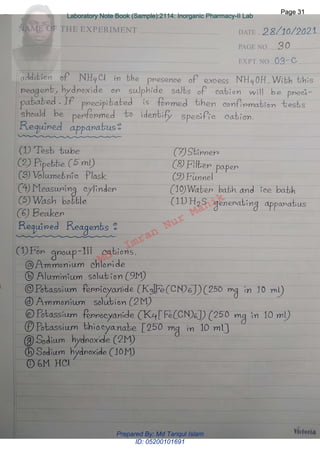 Laboratory Note Book (Sample);2114: Inorganic Pharmacy-II Lab
Page 31
NAME OF THE EXPERIMENT
DATE 28/10/2021
PAGE NO. 30
EXPT. NO. 03-C
addition of NH4Cl in the presence of excess NH4OH. With this
reagent, hydroxide or sulphide salts of cation will be preci-
patated. If precipitated is formed then confirmation tests
should be performed to identify specific cation.
Required apparatus:
(1) Test tube
(2) Pipette (5 ml)
(3) Volumetric Flask
(4) Measuring cylinder
(5) Wash bottle
(6) Beaker
(7) Stirrer
(8) Filter paper
(9) Funnel
(10) Water bath and ice bath
(11) H2S generating apparatus
Required Reagents:
(1) For group-III cations.
ⓐ Ammonium chloride
ⓑ Aluminium solution (9M)
ⓒ Potassium ferricyanide (K3[Fe(CN)6]) (250 mg in 10 ml)
ⓓ Ammonium solution (2M)
ⓔ Potassium ferrocyanide (K4[Fe(CN)6]) (250 mg in 10 ml)
ⓕ Potassium thiocyanate [250 mg in 10 ml]
ⓖ Sodium hydroxide (2M)
ⓗ Sodium hydroxide (10M)
ⓘ 6M HCl
Imran Nur Manik
Victoria
Prepared By: Md Tariqul Islam
ID: 05200101691